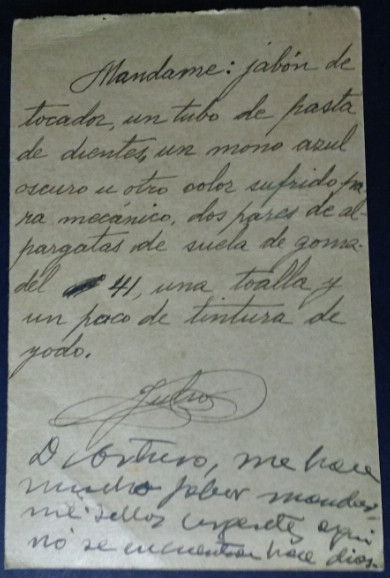 Mandame: jabón de
tocador, un tubo de pasta
de dientes, un mono azul
oscuro u otro color sufrido pa-
ra mecánico, dos pares de al-
pargatas de suela de goma
del 41, una toalla y
un poco de tintura de
yodo.
Julio
D. Arturo, me hace
mucho fabor mandar-
me sellos urgentes, aqui
no se encuentran hace dias.